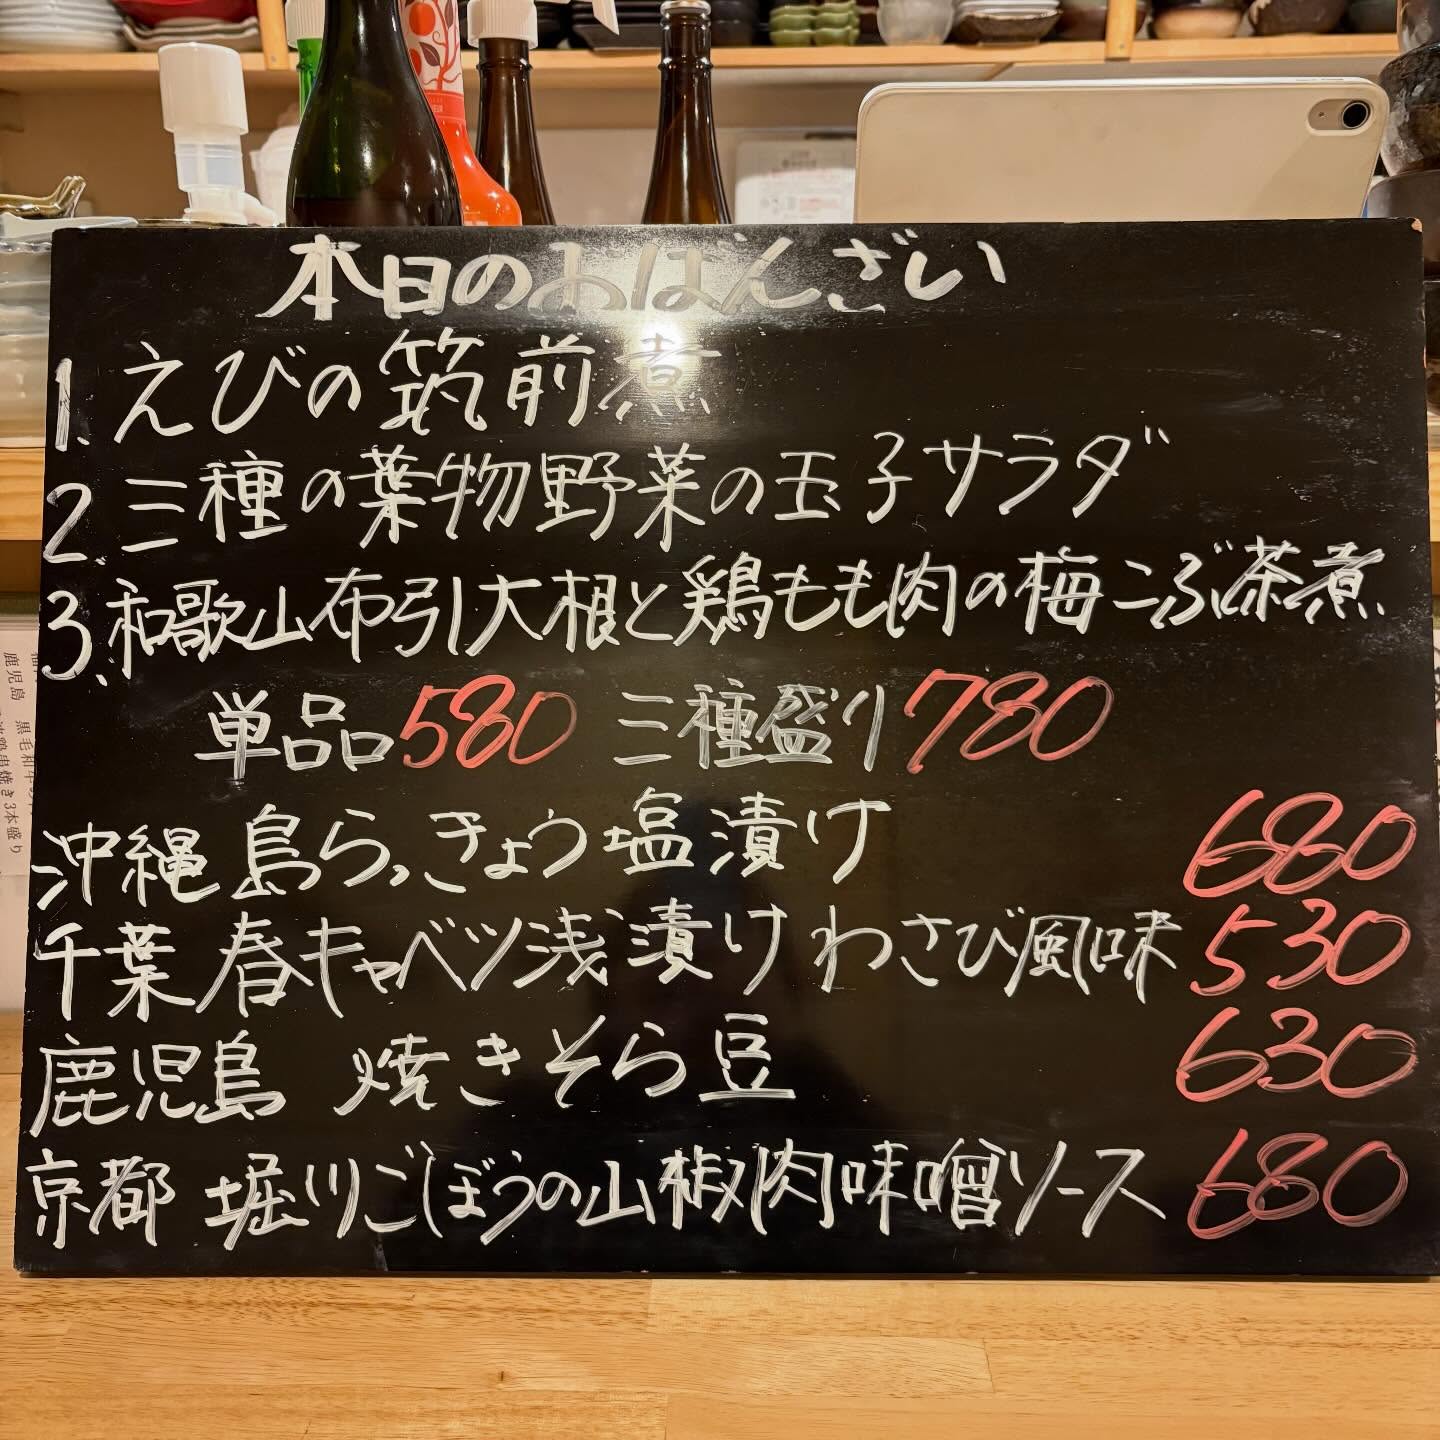 本日のおばんざい
1. えびの筑前煮
2. 三種の葉物野菜の玉子サラダ
3. 和歌山布引大根と鶏もも肉の梅こぶ茶煮
単品580 三種盛り780
沖縄 島らっきょう塩漬け 680
千葉 春キャベツ浅漬けわさび風味 530
鹿児島 焼きそら豆 630
京都 堀川ごぼうの山椒肉味噌ソース 680
鹿児島 黒毛和牛
串焼き3本盛り